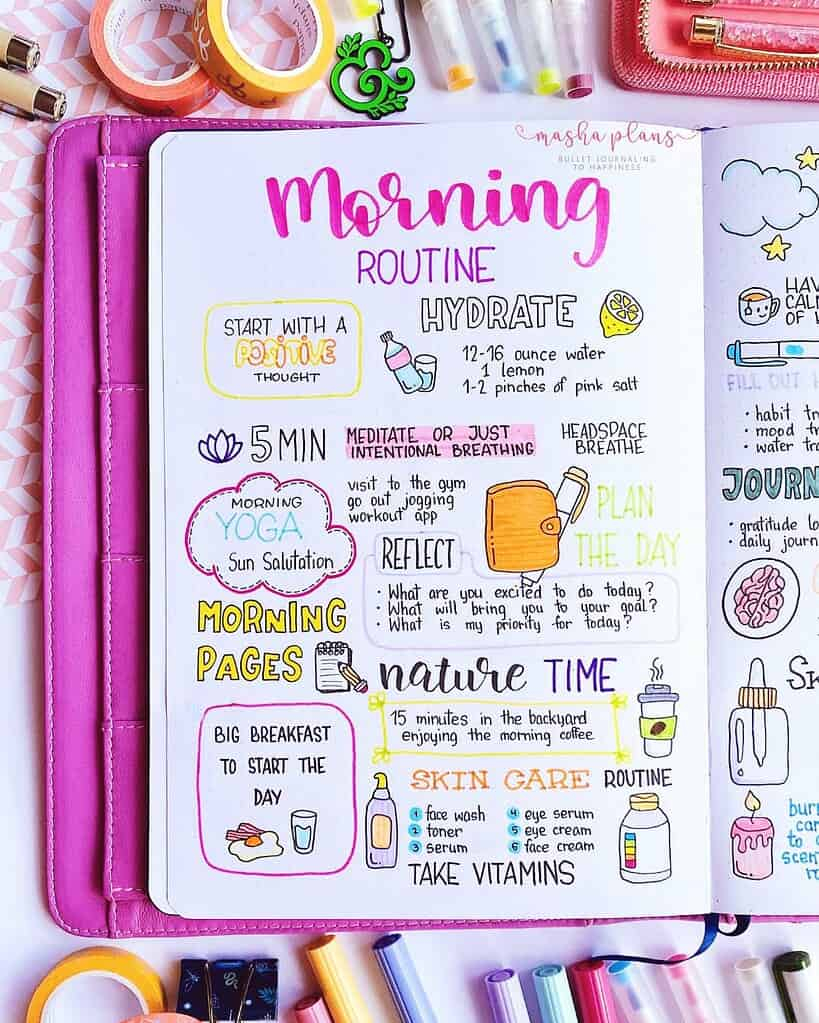 masha plans
BULLET JOURNALING
TO HAPPINESS
Morning
ROUTINE
START WITH A
POSITIVE
THOUGHT
HYDRATE
12-16 ounce water
1 lemon
1-2 pinches of pink salt
5 MIN
MEDITATE OR JUST
INTENTIONAL BREATHING
HEADSPACE
BREATHE
MORNING
YOGA
Sun Salutation
visit to the gym
go out jogging
workout app
PLAN
THE DAY
REFLECT
• What are you excited to do today?
• What will bring you to your goal?
• What is my priority for today?
MORNING
PAGES
nature TIME
15 minutes in the backyard
enjoying the morning coffee
BIG BREAKFAST
TO START THE
DAY
SKIN CARE ROUTINE
1 face wash
2 toner
3 serum
4 eye serum
5 eye cream
6 face cream
TAKE VITAMINS
OF
FILL OUT
• habit
• mood
• water
JOURN
• gratitude
• daily journ
to